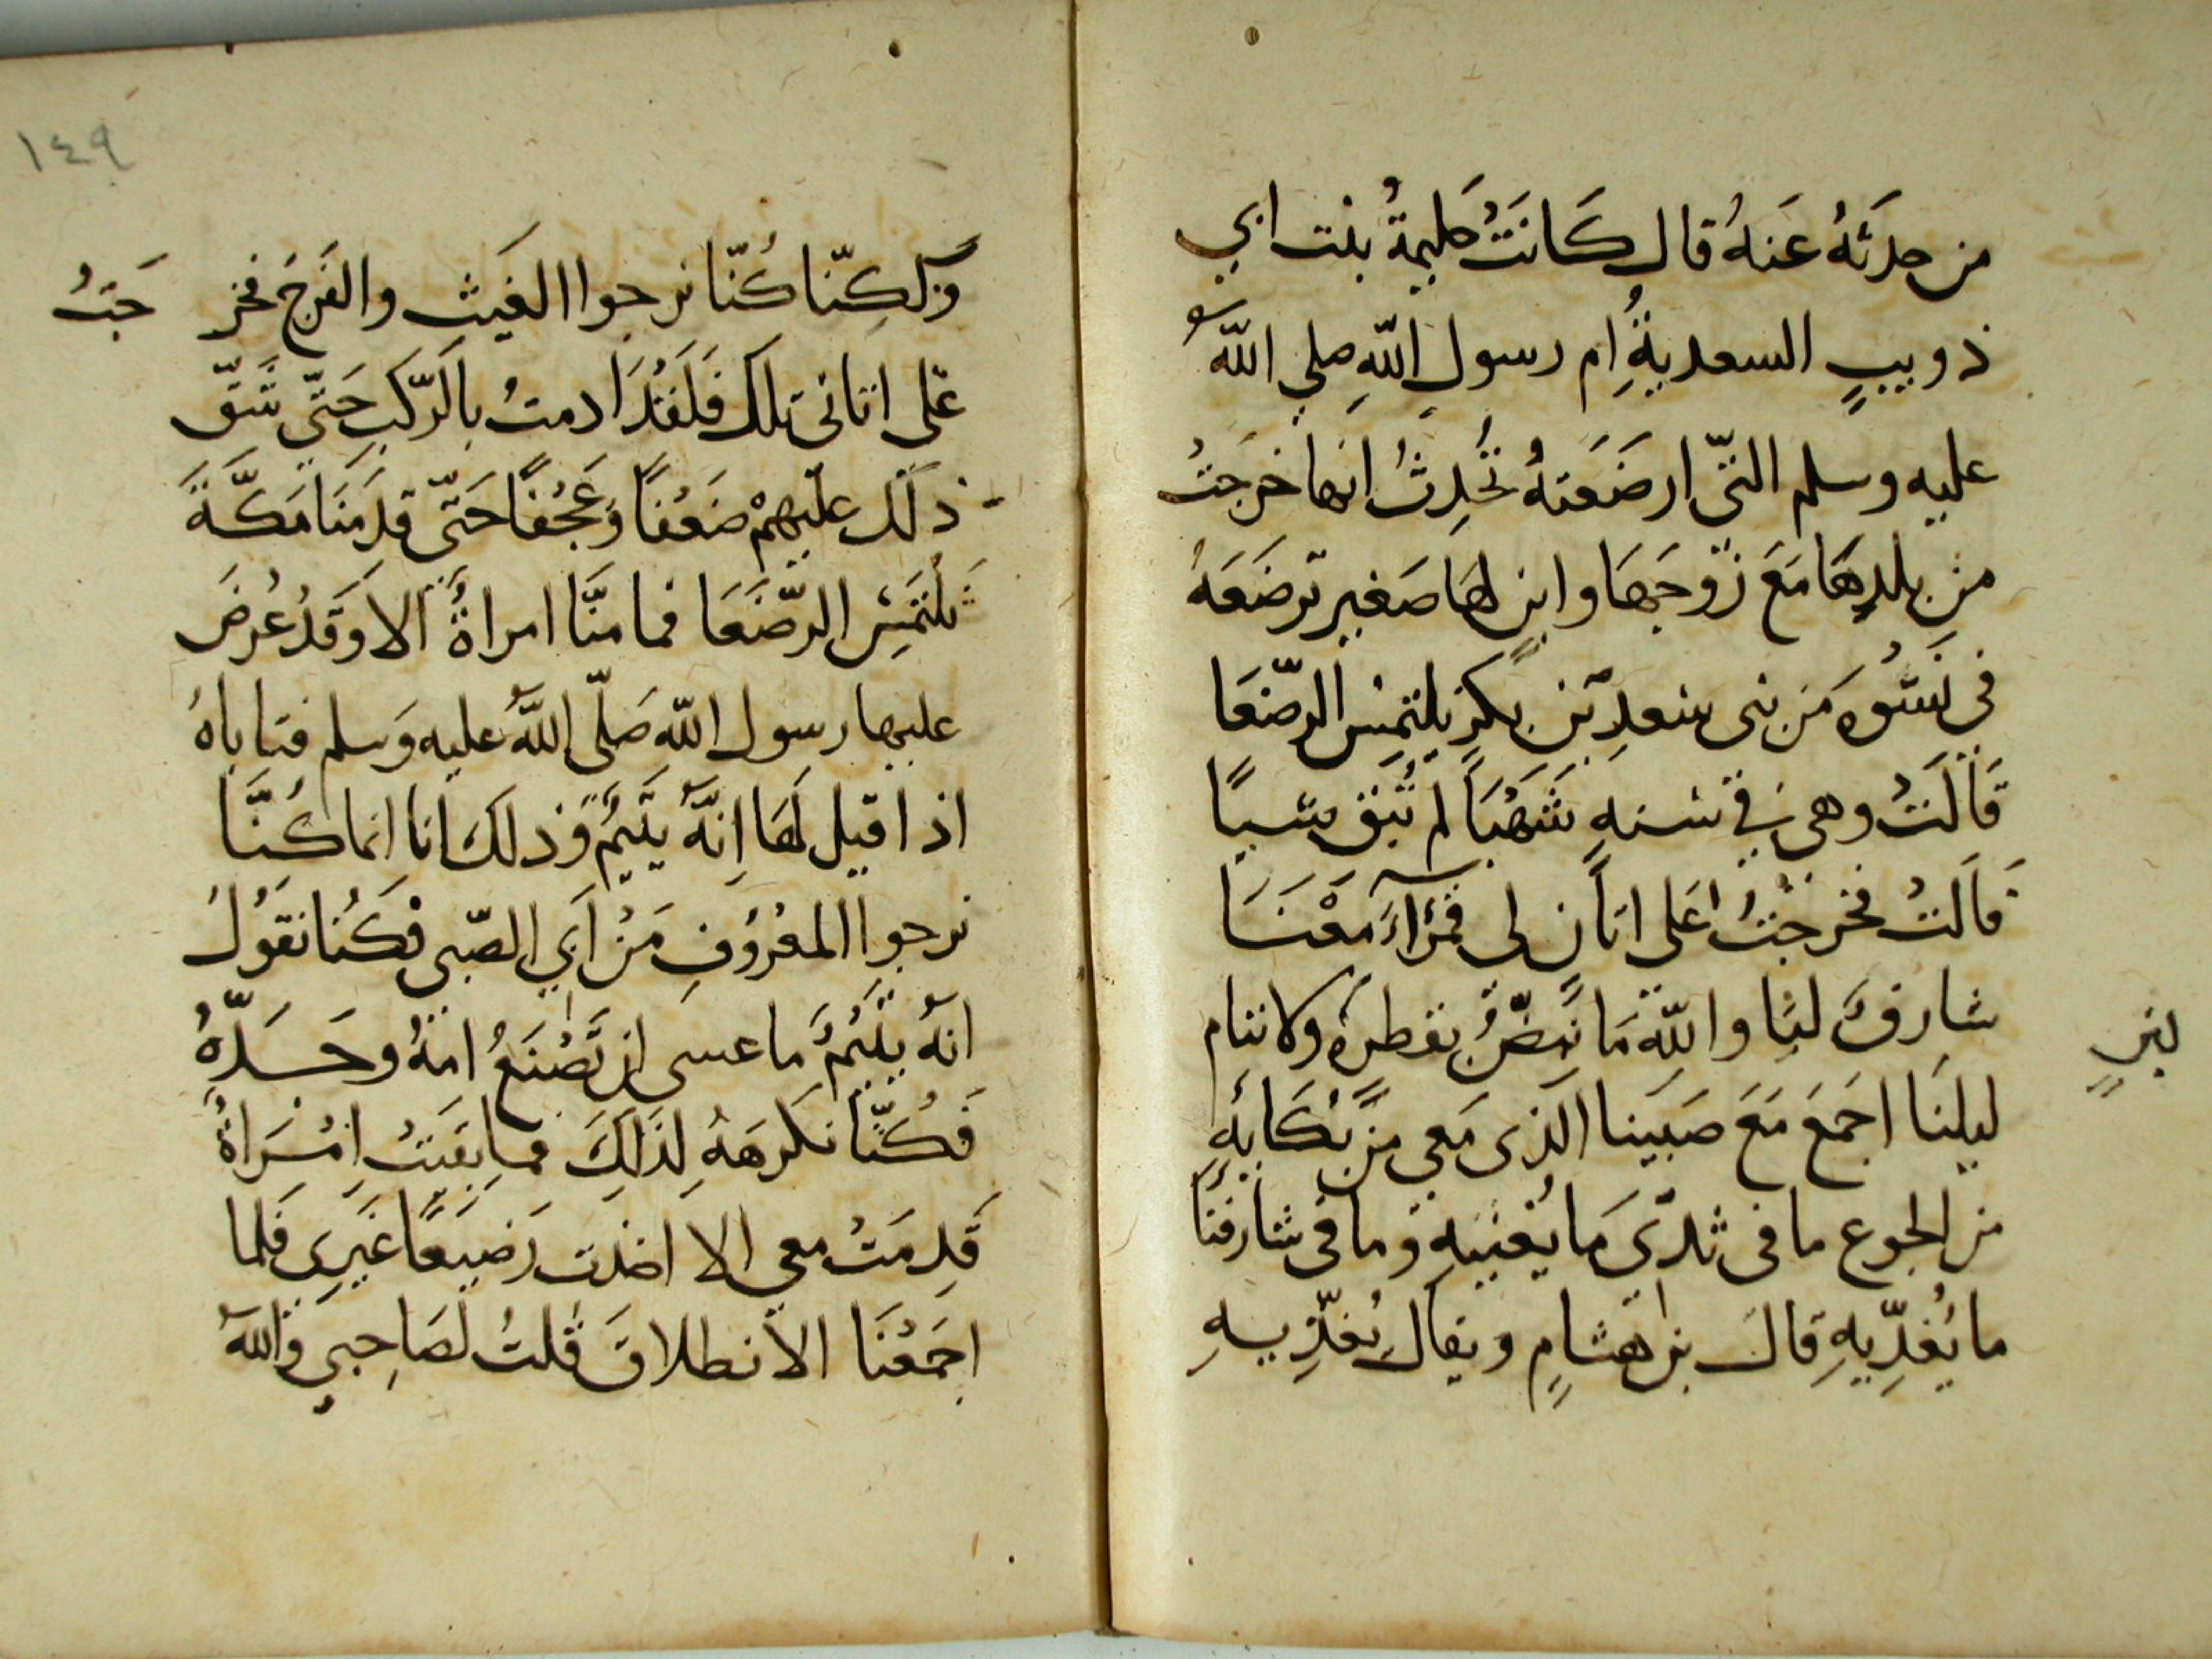 من حدثهُ عَنهُ قال كَانَتْ حَليمةُ بنت ابي
ذويبٍ السعديةِ ام رسول اللهِ صلى اللهُ
عليه وسلم التّي ارضَعَتهُ تُحَدِثُ انها خرجَتْ
من بلدِهَا مَعَ زَوجَهَا وابنٍ لهَا صَغيرٍ ترضَعَهُ
في نسْوَه مَن بنى سَعدِ بَن بكرٍ يلتمِسْ الرضّعَا
قَالَتْ وهي في سَنهٍ شَهْبَا لم تُبق شَيئًا
قَالَتْ فخرجْتُ عَلى اتانٍ لى قمرَآءَ مَعْنَا
شارِفٌ لنا واللهِ مَا تَبِضُّ بقطرهٍ ولا ننام
لبنٍ
ليلنَا اجمَعَ مَعَ صَبَينا الذى مَعي مَن بُكَائهِ
من الجوع ما فى ثديَ مَا يُغنيهِ وما في شارفنَا
ما يُغدِّيهِ قالَ بن هشامٍ ويقال يُغذِّيهِ
١٤٩
وَلكِنّا كُنّا نرجوا الغَيثِ والفَرجَ فخر جَتُ
عَلى اتانى تلك فَلَقَدْ ادمتُ بالرّكبِ حَتّى شَّقّ
ذلَك عليَهِمْ ضَعْفًا وَعَجْفًا حَتّى قدَمنَا مَكَّةَ
نلتمَسِ الرّضَعَا فما منَّا امراةٌ الا وَقَدْ عُرضَ
عليها رسول الله صَلّى اللهُ عليه وَسلم فتاباهُ
اذا قيل لهَا اِنَّهُ يتَيمٌ وَذلكَ انا انما كُنَّا
نرجوا المَعْرُوفِ مَنْ اَبي الصّبى فكُنا نقَولُ
انهُ يَتَيُمٌ ما عسى ان تَصْنَعُ امّهُ وجَدّهُ
فَكُنّا نكرهَهُ لِذَلِكَ فما بقيَتْ اِمْرَاةٌ
قَدِمَتْ معي الا اخذت رَضيعًا غَيَرى فَلما
اجمَعْنَا الانطلاقَ قلتُ لصَاحِبي وَاللهُ